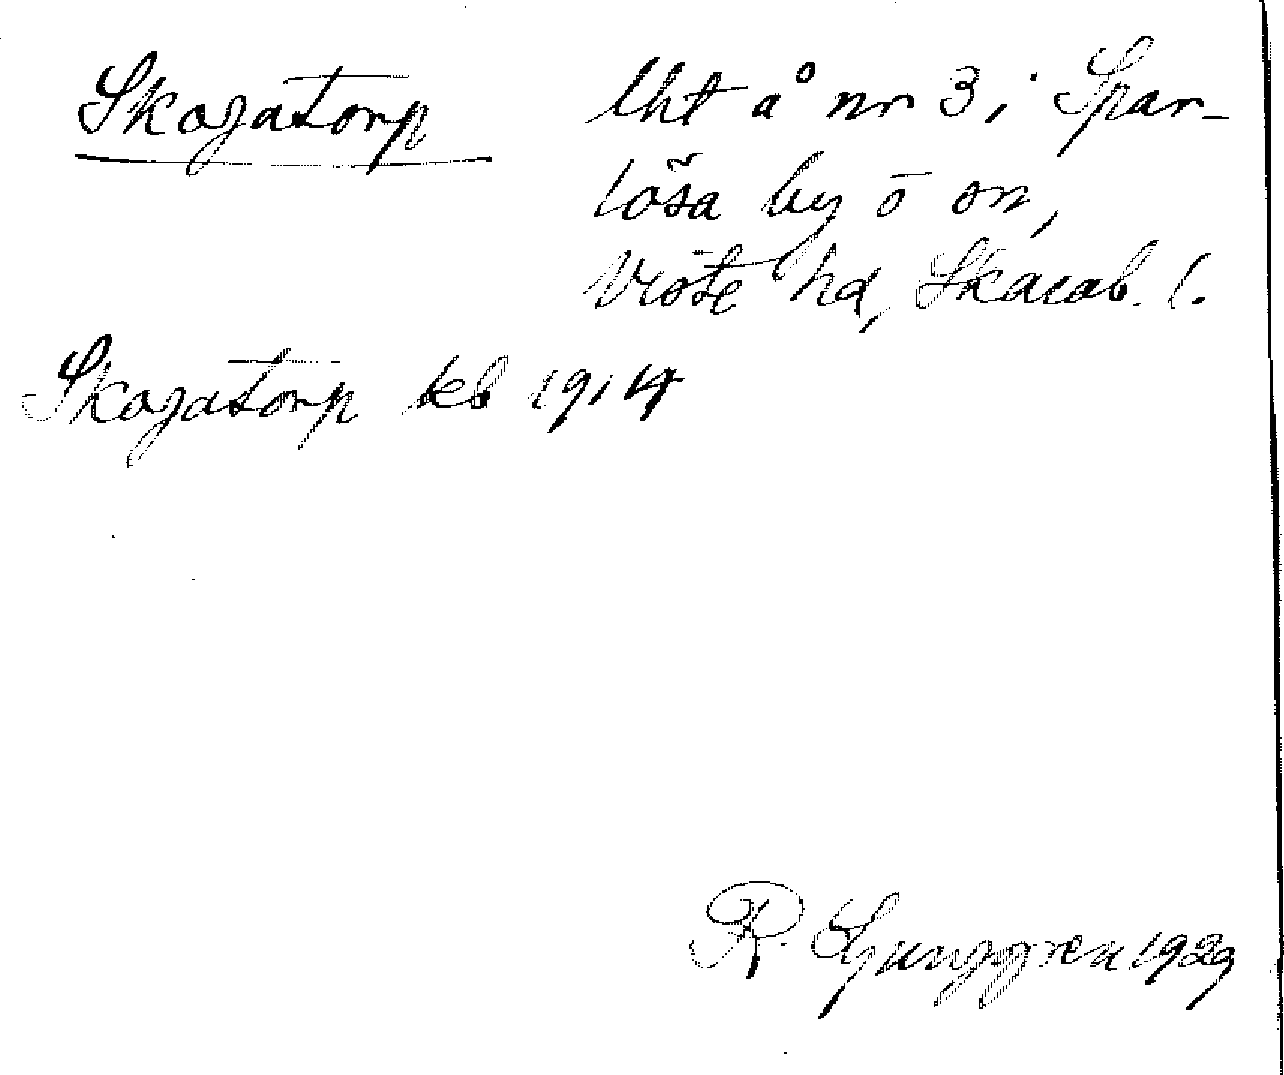 Skogatorp
lht å nr 3 i Spar-
lösa by o sn,
Viste hd, Skarab. l.
Skogatorp kb 1914
R. Ljunggren 1929